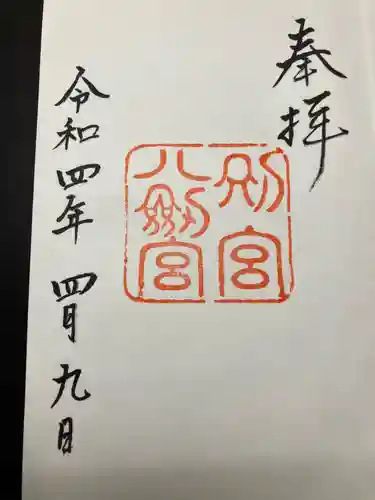 奉拝
別宮
八剱宮
令和四年四月九日